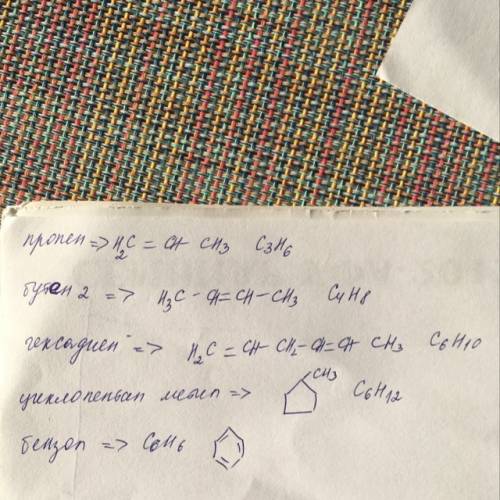 пропен => H2C = CH - CH3 C3H6
бутен 2 => H3C - CH = CH - CH3 C4H8
гексадиен => H2C = CH - CH2 - CH = CH CH3 C6H10
циклопентан метил => CH3 C6H12
бензол => C6H6